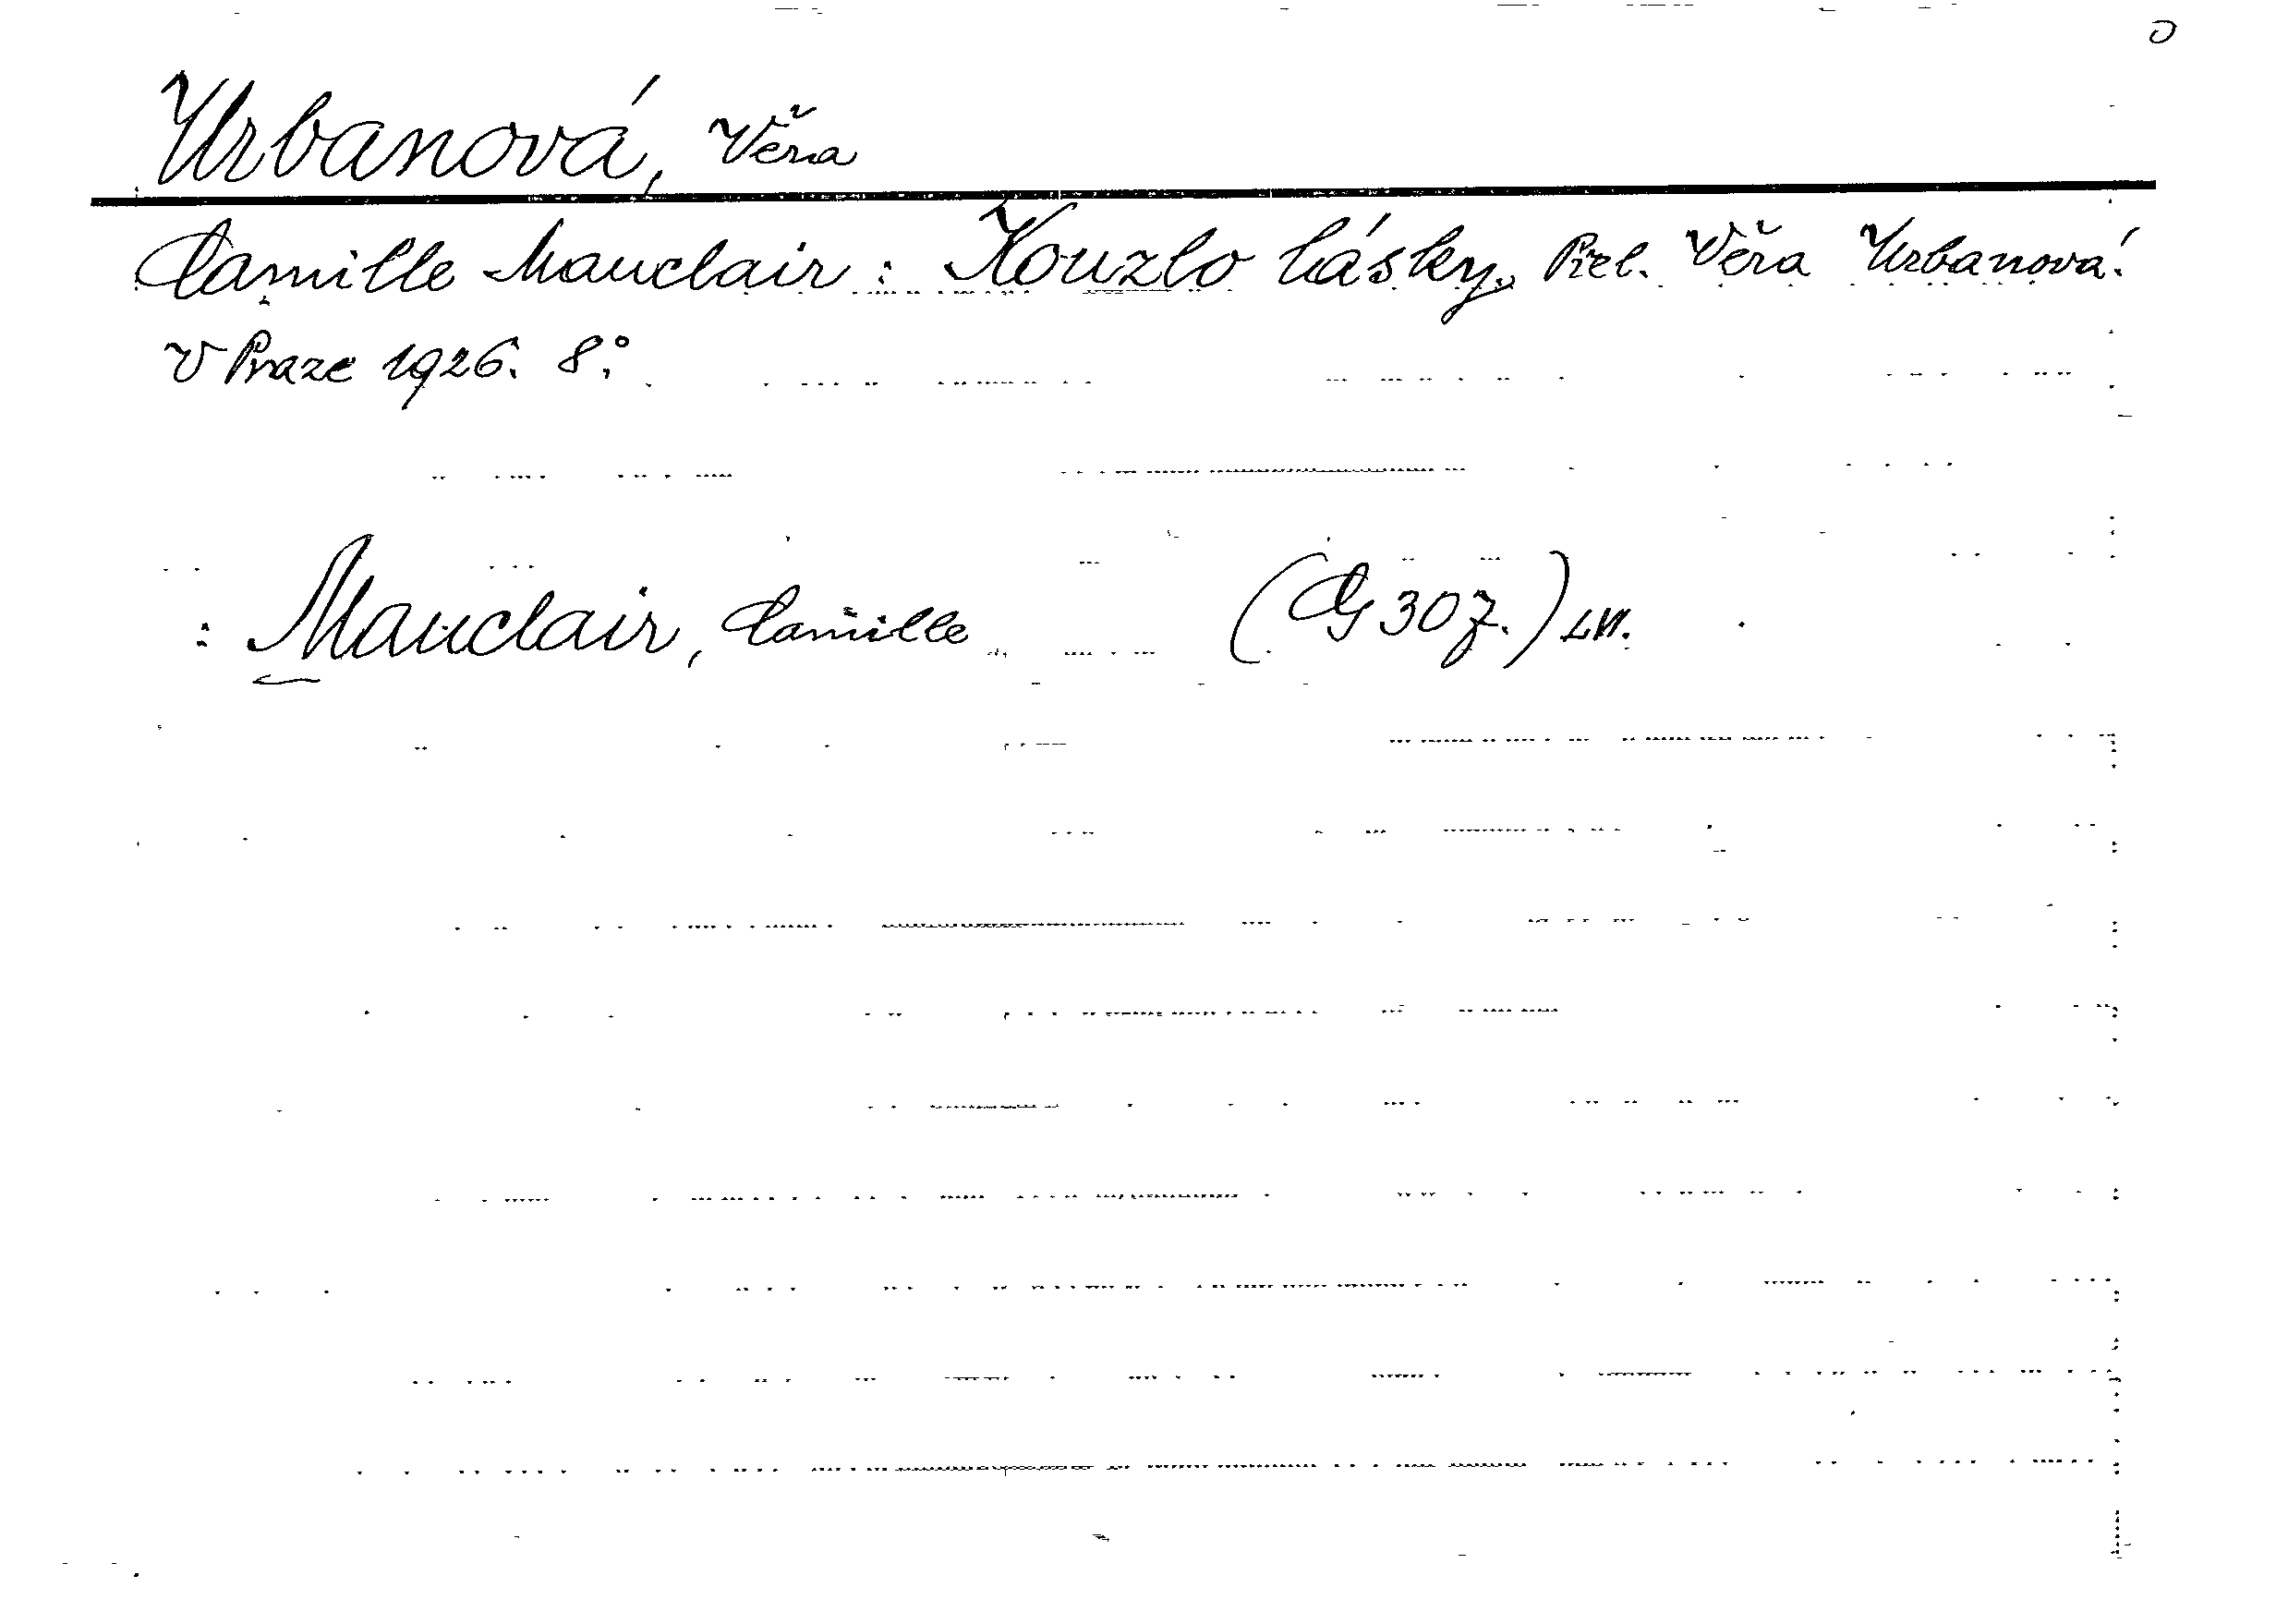 Urbanová, Věra
Camille Mauclair: Kouzlo lásky. Přel. Věra Urbanová.
V Praze 1926. 8°.
: Mauclair, Camille (G 307.) LVI.